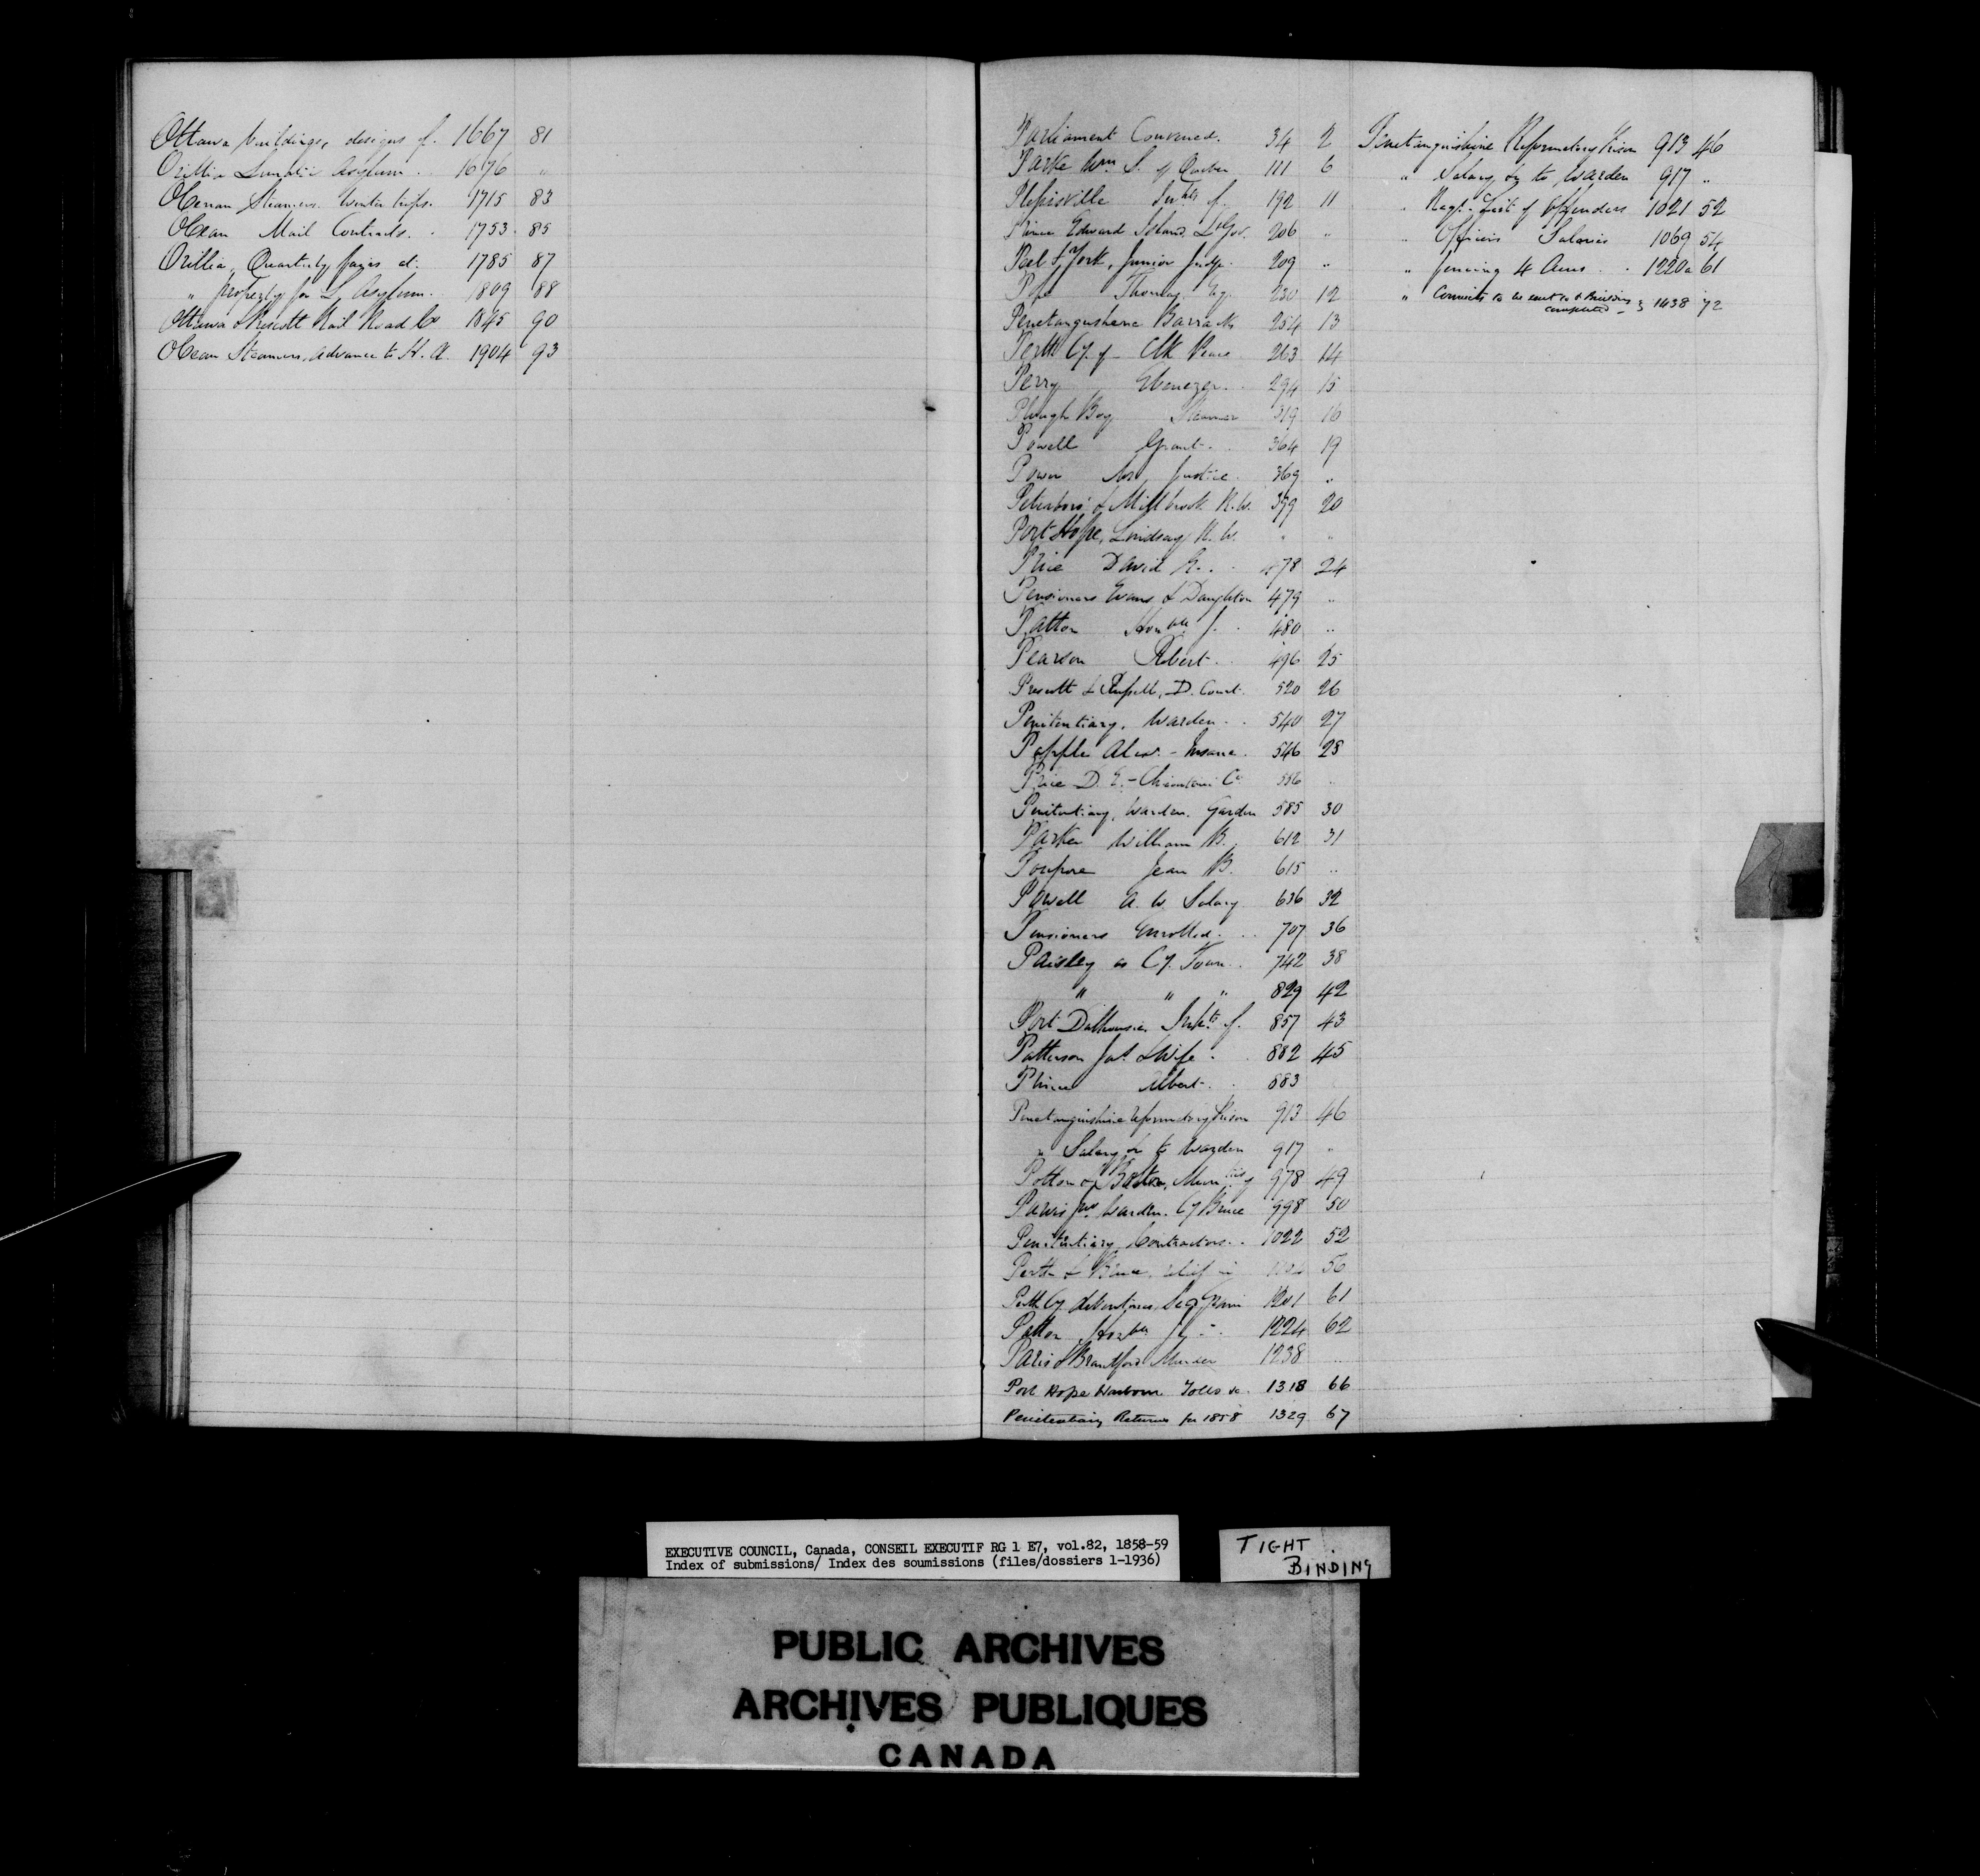 Ottawa buildings, designs of. 1667 81
Orillia Lunatic Asylum. 1676 "
Ocean Steamers. Winter trips. 1715 83
Ocean Mail Contracts. 1753 85
Orillia, Quarterly fairs at. 1785 87
" property for L. Asylum. 1809 88
Ottawa & Prescott Rail Road Co 1845 90
Ocean Steamers, Advance to H. A. 1904 93
Parliament Convened. 34 2
Parke Wm. S. of Quebec 111 6
192 11
Prince Edward Island. Lt Gov. 206 "
Peel & York, Junior Judge. 209 "
Pope Thomas, 230 12
Penetanguishene Barracks 254 13
Perth Cy. of Clk Peace 263 14
Perry Ebenezer. 294 15
Plough Boy Steamer 319 16
Powell Grant. 364 19
Power Mr Justice. 369 "
Peterboro' & Millbrook R.W. 379 20
Port Hope, Lindsay R.W. " "
Price David E. 478 24
Pensioners Evans & Daughton 479 "
Patton Honble J. 480 "
Pearson Robert. 496 25
Prescott & Russell, D. Court. 520 26
Penitentiary, Warden. 540 27
Popple Alexr. - Insane. 546 28
Price D. E. - Chicoutimi Co 556 "
Penitentiary, Warden. Garden 585 30
Parker William B. 612 31
Poupore Jean B. 615 "
Powell A. W. Salary 636 32
Pensioners Enrolled. 707 36
Paisley as Cy. Town. 742 38
" " " 829 42
Port Dalhousie, Inhts of. 857 43
Patterson Jas. & Wife. 882 45
Prince Albert. 883
Penetanguishine Reformatory Prison 913 46
" Salary &c to Warden 917 "
Potton & Bolton, of 978 49
Warden. Cy Bruce 998 50
Penitentiary Contractors. 1022 52
Perth & Bruce, relief in 56
Perth Cy debentures, Seed Grain 1201 61
Patton Honble J. 1224 62
Paris & Brantford Murder 1238 "
Port Hope Harbour Tolls &c. 1318 66
Penitentiary Returns for 1858 1329 67
Penetanguishine Reformatory Prison 913 46
" Salary &c to Warden 917 "
" Regt. List of Offenders 1021 52
" Officers Salaries 1069 54
" fencing 4 Acres 1220a 61
" Convicts to be sent to & Building
completed 1438 72
EXECUTIVE COUNCIL, Canada, CONSEIL EXECUTIF RG 1 E7, vol.82, 1858-59
Index of submissions/ Index des soumissions (files/dossiers 1-1936)
TIGHT
BINDING
PUBLIC ARCHIVES
ARCHIVES PUBLIQUES
CANADA